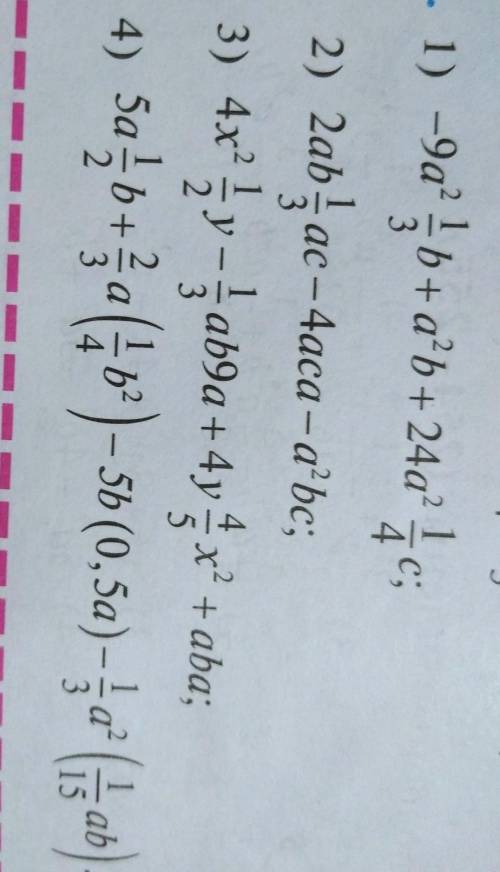 1) −9a² 1/3 b + a²b + 24a² 1/4 c;
2) 2ab 1/3 ac − 4aca − a²bc;
3) 4x² 1/2 y − 1/3 ab9a + 4y 4/5 x² + aba;
4) 5a 1/2 b + 2/3 a (1/4 b²) − 5b (0,5a) − 1/3 a² (1/15 ab).